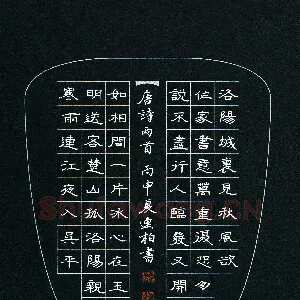 洛陽城裏見秋風欲
作家書意萬重復恐匆
說不盡行人臨發又開
唐詩兩首 丙申夏建柏書
如相問一片冰心在玉
明送客楚山孤洛陽親
寒雨連江夜入吳平